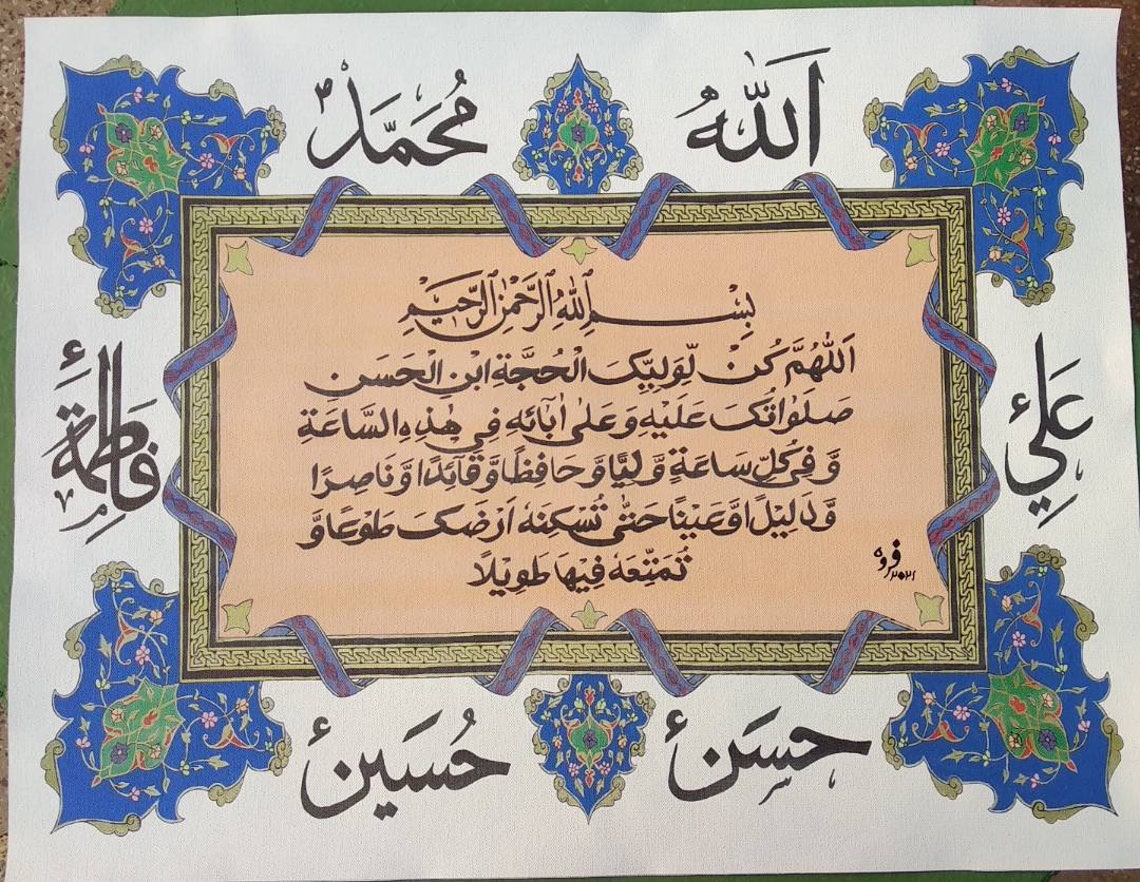 اَللّٰهُ
مُحَمَّدٌ ؐ
بِسْمِ ٱللّٰهِ ٱلرَّحْمٰنِ ٱلرَّحِيْمِ
اَللّٰهُمَّ كُنْ لِّوَلِيِّكَ الْحُجَّةِ ابْنِ الْحَسَنِ
صَلَوَاتُكَ عَلَيْهِ وَعَلٰى اٰبَآئِهٖ فِيْ هٰذِهِ السَّاعَةِ
وَّفِيْ كُلِّ سَاعَةٍ وَّلِيًّا وَّحَافِظًا وَّقَآئِدًا وَّنَاصِرًا
وَّدَلِيْلًا وَّعَيْنًا حَتّٰى تُسْكِنَهٗ اَرْضَكَ طَوْعًا وَّ
تُمَتِّعَهٗ فِيْهَا طَوِيْلًا
فروه
٢٠٢١
عَلِيٌّ
فَاطِمَةٌ
حَسَنٌ
حُسَيْنٌ